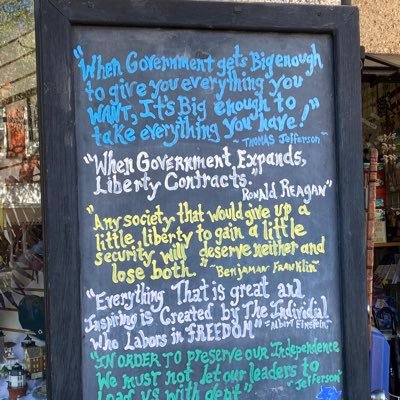 "When Government gets Big enough
to give you everything you
WANT, It's Big enough to
take everything you have!"
~THOMAS Jefferson~
"When Government Expands,
Liberty Contracts."
RONALD REAGAN"
"Any society that would give up a
little liberty to gain a little
security will deserve neither and
lose both." ~Benjaman Franklin~
"Everything That is great and
Inspiring is Created by The Individial
Who Labors in FREEDOM" ~Albert Einstein~
"IN ORDER TO PRESERVE OUR Independence
We must not let our leaders to
Load us with debt" ~Jefferson~